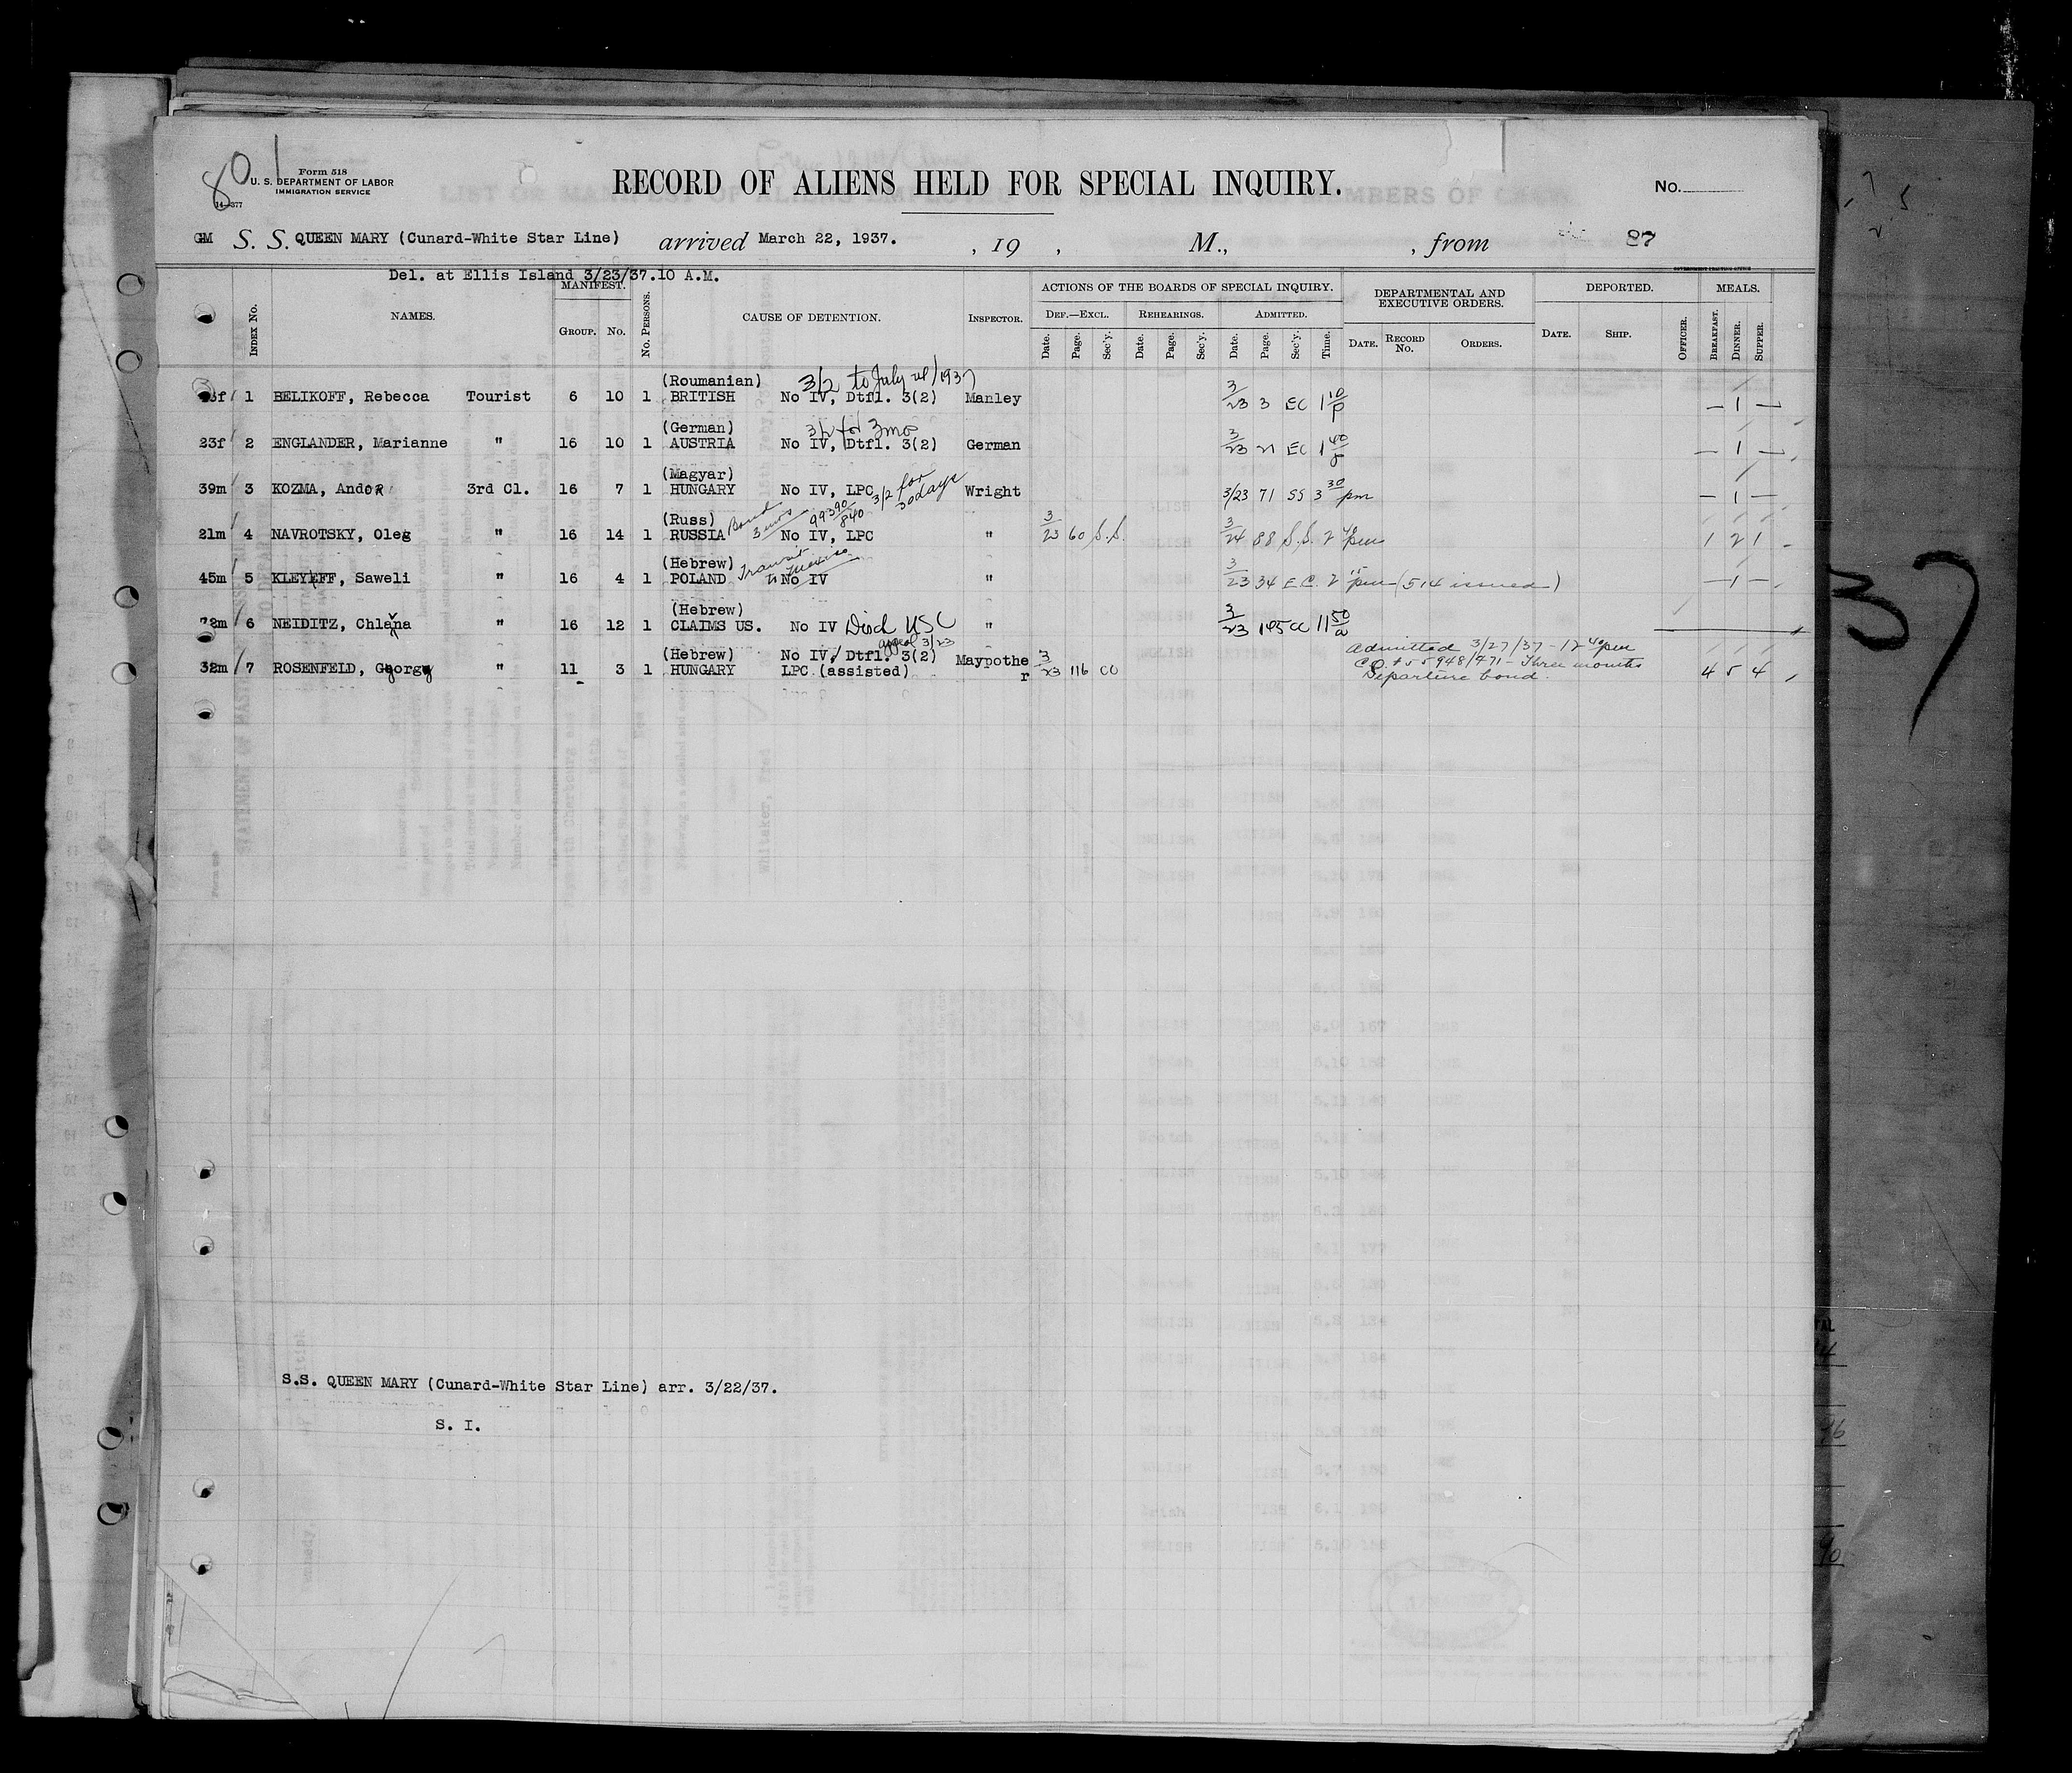 801
Form 518
U. S. DEPARTMENT OF LABOR
IMMIGRATION SERVICE
14—377
RECORD OF ALIENS HELD FOR SPECIAL INQUIRY.
No.
GM S. S. QUEEN MARY (Cunard-White Star Line) arrived March 22, 1937. , 19 , M., , from 87
Del. at Ellis Island 3/23/37.10 A.M.
GOVERNMENT PRINTING OFFICE
INDEX NO. NAMES. MANIFEST. GROUP. NO. NO. PERSONS. CAUSE OF DETENTION. INSPECTOR. ACTIONS OF THE BOARDS OF SPECIAL INQUIRY. DEPARTMENTAL AND EXECUTIVE ORDERS. DEPORTED. OFFICER. MEALS.
DEF.—EXCL. REHEARINGS. ADMITTED.
Date. Page. Sec'y. Date. Page. Sec'y. Date. Page. Sec'y. Time. DATE. RECORD NO. ORDERS. DATE. SHIP. BREAKFAST. DINNER. SUPPER.
(Roumanian) 3/2 to July 1937
f 1 BELIKOFF, Rebecca Tourist 6 10 1 BRITISH No IV, Dtfl. 3(2) Manley 3/23 3 EC 1 10/p — 1 —
(German) 3/2 for 3 mos
23f 2 ENGLANDER, Marianne " 16 10 1 AUSTRIA No IV, Dtfl. 3(2) German 3/23 21 EC 1 40/p — 1 —
(Magyar) 3/2 for 30 days
39m 3 KOZMA, Andor 3rd Cl. 16 7 1 HUNGARY No IV, LPC Wright 3/23 71 SS 3 30 pm — 1 —
(Russ) Bond 3 mos 99390/840
21m 4 NAVROTSKY, Oleg " 16 14 1 RUSSIA No IV, LPC " 3/23 60 S.S. 3/24 88 S.S. 2 pm 1 2 1
(Hebrew) Transit to Mexico
45m 5 KLEYEFF, Saweli " 16 4 1 POLAND No IV " 3/23 34 E.C. 2 15 pm (514 issued) — 1 —
(Hebrew)
72m 6 NEIDITZ, Chlana " 16 12 1 CLAIMS US. No IV Disch USC " 3/23 145 CC 11 50/a
appeal 3/23
(Hebrew) No IV, Dtfl. 3(2) Maypother 3/23 116 CO Admitted 3/27/37 - 12 40 pm
32m 7 ROSENFELD, Gyorgy " 11 3 1 HUNGARY LPC (assisted) C.O. # 55948/471 - Three months 4 5 4
Departure bond.
S.S. QUEEN MARY (Cunard-White Star Line) arr. 3/22/37.
S. I.
37